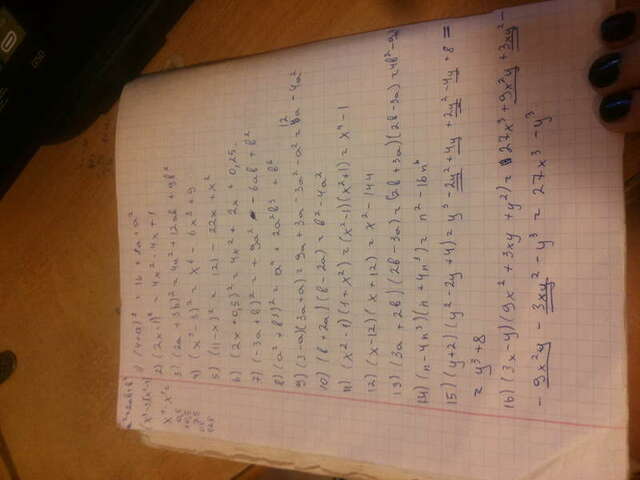 a²+2ab+b²
1) (4+a)² = 16 + 8a + a²
2) (2x-1)² = 4x² - 4x + 1
3) (2a + 3b)² = 4a² + 12ab + 9b²
4) (x³ - 3)² = x⁶ - 6x³ + 9
5) (11-x)² = 121 - 22x + x²
6) (2x + 0,5)² = 4x² + 2x + 0,25.
7) (-3a + b)² = + 9a² - 6ab + b²
8) (a² + b³)² = a⁴ + 2a²b³ + b⁶
9) (3-a)(3a+a) = 9a + 3a - 3a² - a² = 12a - 4a²
10) (b + 2a)(b - 2a) = b² - 4a²
11) (x² - 1)(1 + x²) = (x² - 1)(x² + 1) = x⁴ - 1
12) (x-12)(x + 12) = x² - 144
13) (3a + 2b)(2b - 3a) = (2b + 3a)(2b - 3a) = 4b² - 9a
14) (n - 4n³)(n + 4n³) = n² - 16n⁶
15) (y+2)(y² - 2y + 4) = y³ - 2y² + 4y + 2y² - 4y + 8 =
= y³ + 8
16) (3x - y)(9x² + 3xy + y²) = 27x³ + 9x²y + 3xy² -
- 9x²y - 3xy² - y³ = 27x³ - y³